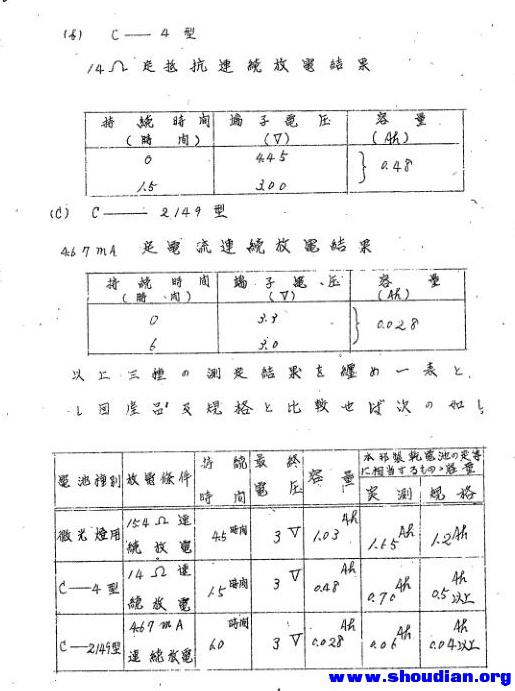 (b) C — 4 型
14Ω 定抵抗連続放電結果
持続時間 端子電圧 容量
(時間) (V) (Ah)
0 4.45
0.48
1.5 3.00
(C) C — 2149 型
4.67 mA 定電流連続放電結果
持続時間 端子電圧 容量
(時間) (V) (Ah)
0 3.3
0.028
6 3.0
以上三種の測定結果を纏め一表と
し国産品及規格と比較せば次の如し
電池種別 放電條件 持続時間 最終電圧 容量 本邦製乾電池の之等に相当するもの、容量
実測 規格
微光燈用 154Ω 連続放電 45時間 3V 1.03Ah 1.65Ah 1.2Ah
C—4型 14Ω 連続放電 1.5時間 3V 0.48Ah 0.70Ah 0.5Ah以上
C—2149型 4.67mA 連続放電 6.0時間 3V 0.028Ah 0.06Ah 0.04Ah以上
www.shoudian.org